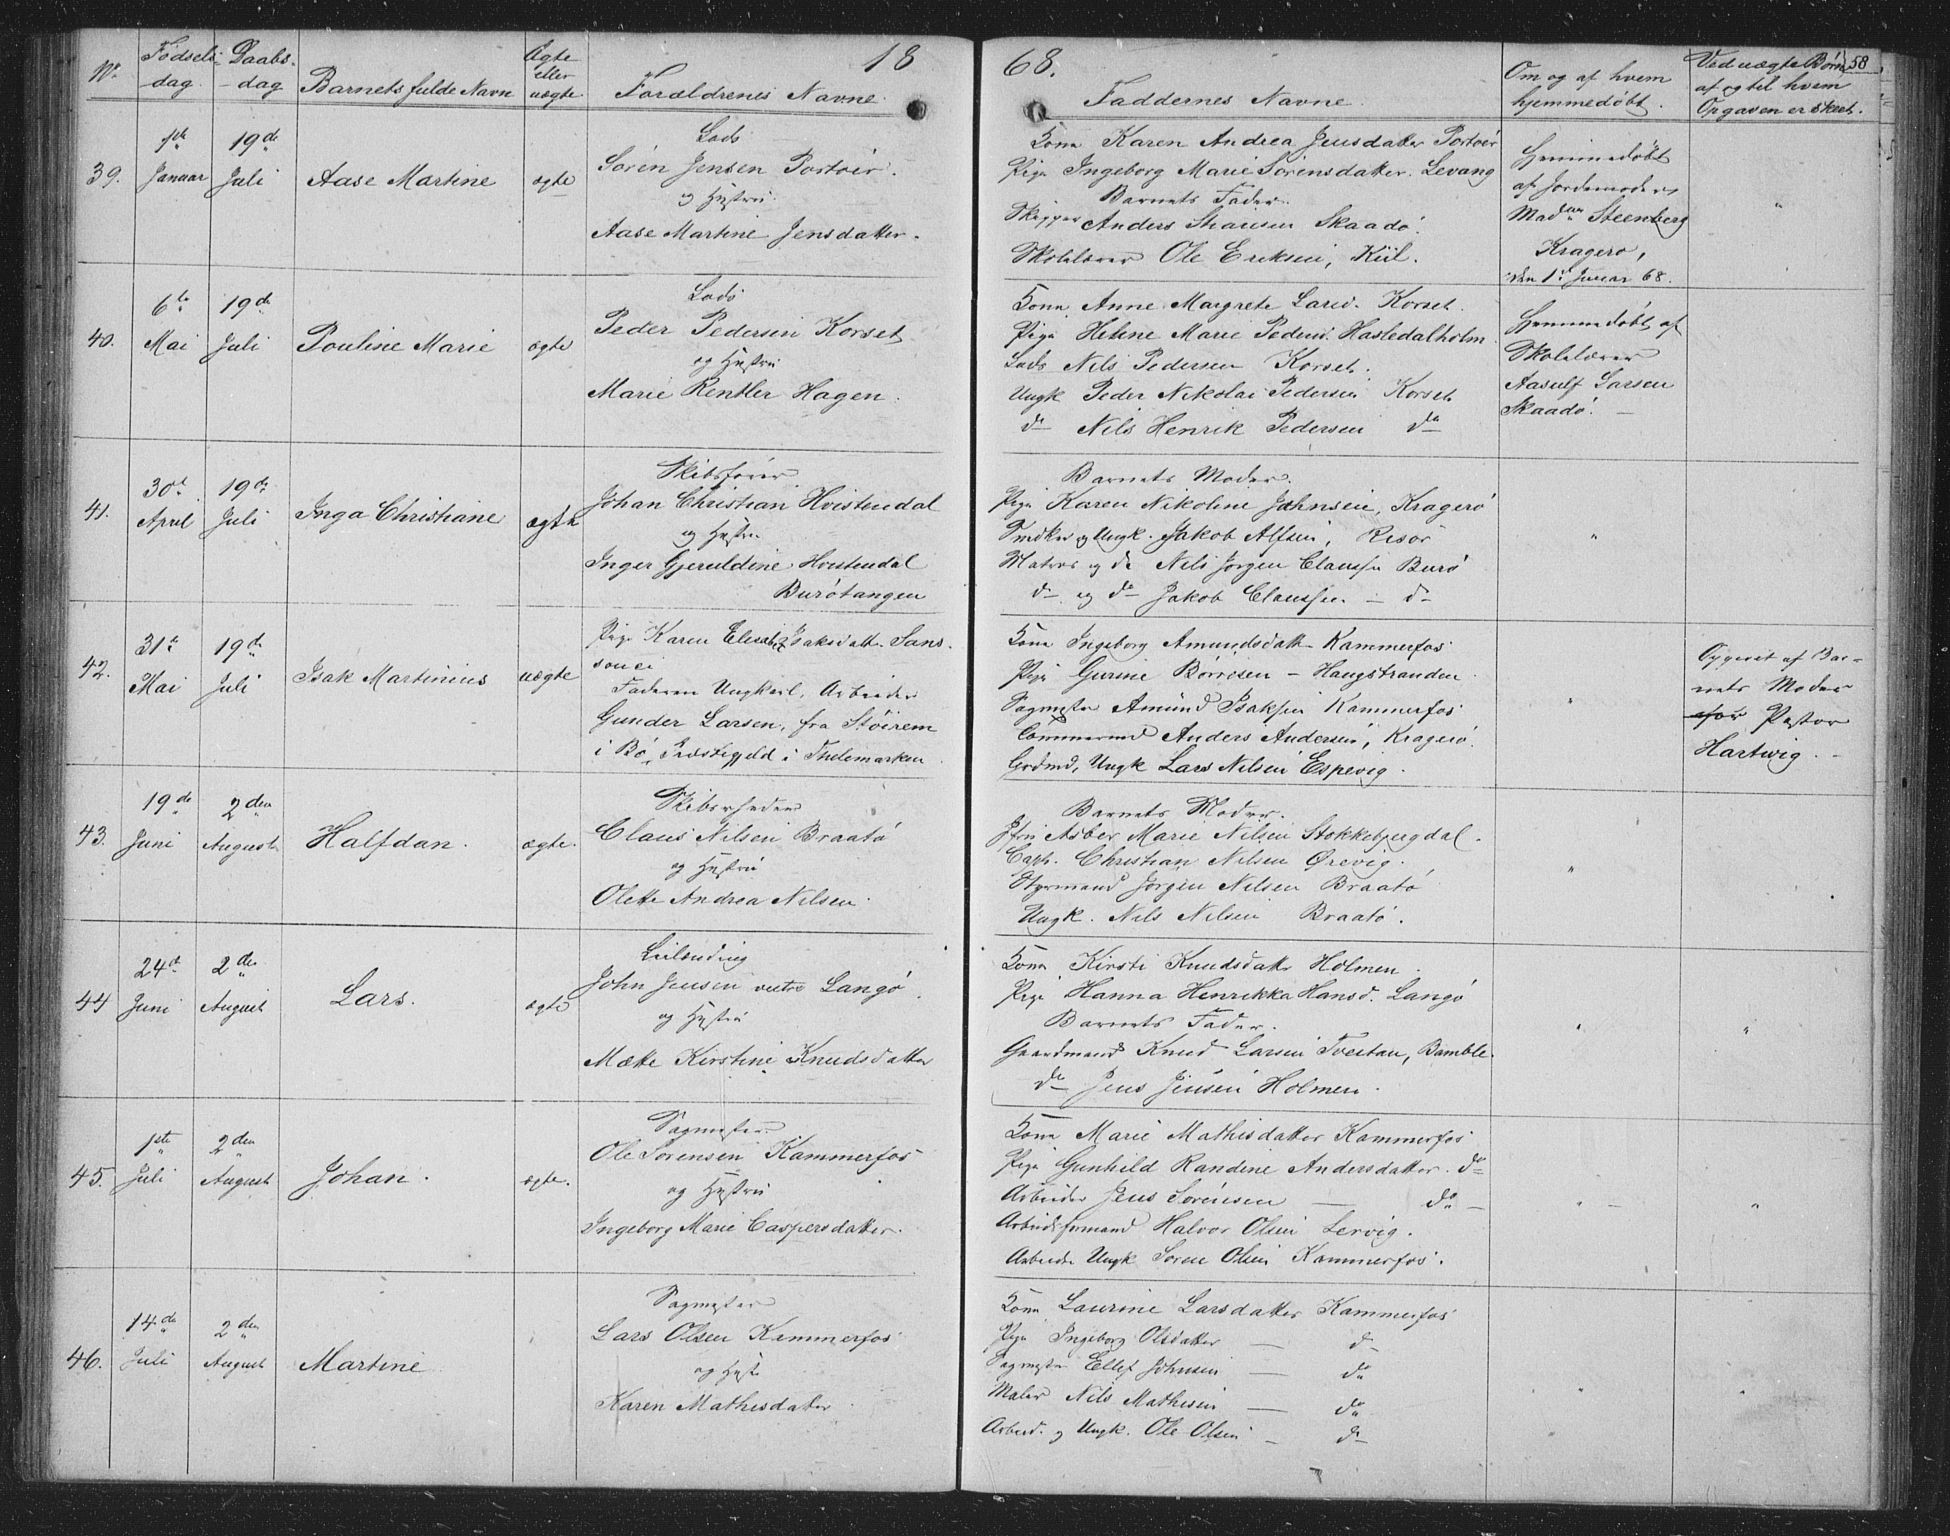 18 68.
58
No. Fødsels- Daabs- Barnets fulde Navn Ægte Forældrenes Navne. Faddernes Navne. Om og af hvem Ved uægte Børn
dag. dag eller uægte hjemmedøbt. af og til hvem
Opgaven er skeet.
39. 1ste Januar 19de Juli Aase Martine ægte
Lods
Søren Jensen Portøer.
og Hustru
Aase Martine Jensdatter.
Kone Karen Andrea Jensdatter Portøer
Pige Ingeborg Marie Sørensdatter. Levang
Barnets Fader.
Skipper Anders Skaadø.
Skolelærer Ole Eriksen, Kiil.
Hjemmedøbt
af Jordemoder
Madme Steenberg
Kragerø,
den 1ste Januar 68.
"
40. 6te Mai 19de Juli Pouline Marie ægte
Lods
Peder Pedersen Korset
og Hustru
Marie Rentler Hagen.
Kone Anne Margrete Larsd. Korset.
Pige Helene Marie Peders. Hasledalholm
Lods Nils Pedersen Korset.
Ungk Peder Nikolai Pedersen Korset
do Nils Henrik Pedersen do
Hjemmedøbt af
Skolelærer
Aasulf Larsen
Skaadø. —
41. 30te April 19de Juli Inga Christiane ægte
Skibsfører
Johan Christian Hvistendal
og Hustru
Inger Gjeruldine Hvistendal
Burøtangen
Barnets Moder.
Pige Karen Nikoline Jahnsen, Kragerø
Snedker og Ungk. Jakob Alfsen, Risør
Matros og do Nils Jørgen Claussen Burø
do og do Jakob Claussen — do
"
42. 31te Mai 19de Juli Isak Martinius uægte
Pige Karen Elisabet Isaksdatter Sans-
souci
Faderen Ungkarl, Arbeider
Gunder Larsen, fra Støirem
i Bø Præstegjeld i Thelemarken.
Kone Ingeborg Amundsdatter Kammerfos
Pige Gurine Børresen — Haugstranden.
Sagmester Amund Isaksen Kammerfos
Anders Andersen, Kragerø.
Grdmd, Ungk Lars Nilsen Espevig.
"
Opgivet af Bar-
nets Moder
Pastor
Hartwig. -
43. 19de Juni 2den August Halfdan. ægte.
Skibsrheder
Claus Nilsen Braatø
og Hustru
Olette Andrea Nilsen.
Barnets Moder.
Marie Nilsen
Capt. Christian Nilsen Ørevig.
Styrmand Jørgen Nilsen Braatø
Ungk. Nils Nilsen Braatø.
"
44 24de Juni 2den August Lars. ægte
Leilænding
John Jensen vestre Langø.
og Hustru
Mætte Kirstine Knudsdatter
Kone Kirsti Knudsdatter Holmen.
Pige Hanna Henrikka Hansd. Langø
Barnets Fader.
Gaardmand Knud Larsen Tveitan, Bamble.
do Jens Jensen Holmen.
" "
45. 1ste Juli 2den August Johan. ægte.
Sagmester
Ole Sørensen Kammerfos
og Hustru
Ingeborg Marie Caspersdatter.
Kone Marie Mathisdatter Kammerfos
Pige Gunhild Randine Andersdatter. do
Arbeider Jens Sørensen — do —
Arbeidsformand Halvor Olsen Lervig.
Arbeider Ungk Søren Olsen Kammerfos.
" — "
46. 14de Juli 2den August Martine
Sagmester
Lars Olsen Kammerfos
og Hust
Karen Mathisdatter
Kone Laurine Larsdatter Kammerfos
Pige Ingeborg Olsdatter — do
Sagmester Ellef Johnsen — do
Maler Nils Mathisen — do
Arbeid. og Ungk. Ole Olsen — do
" "